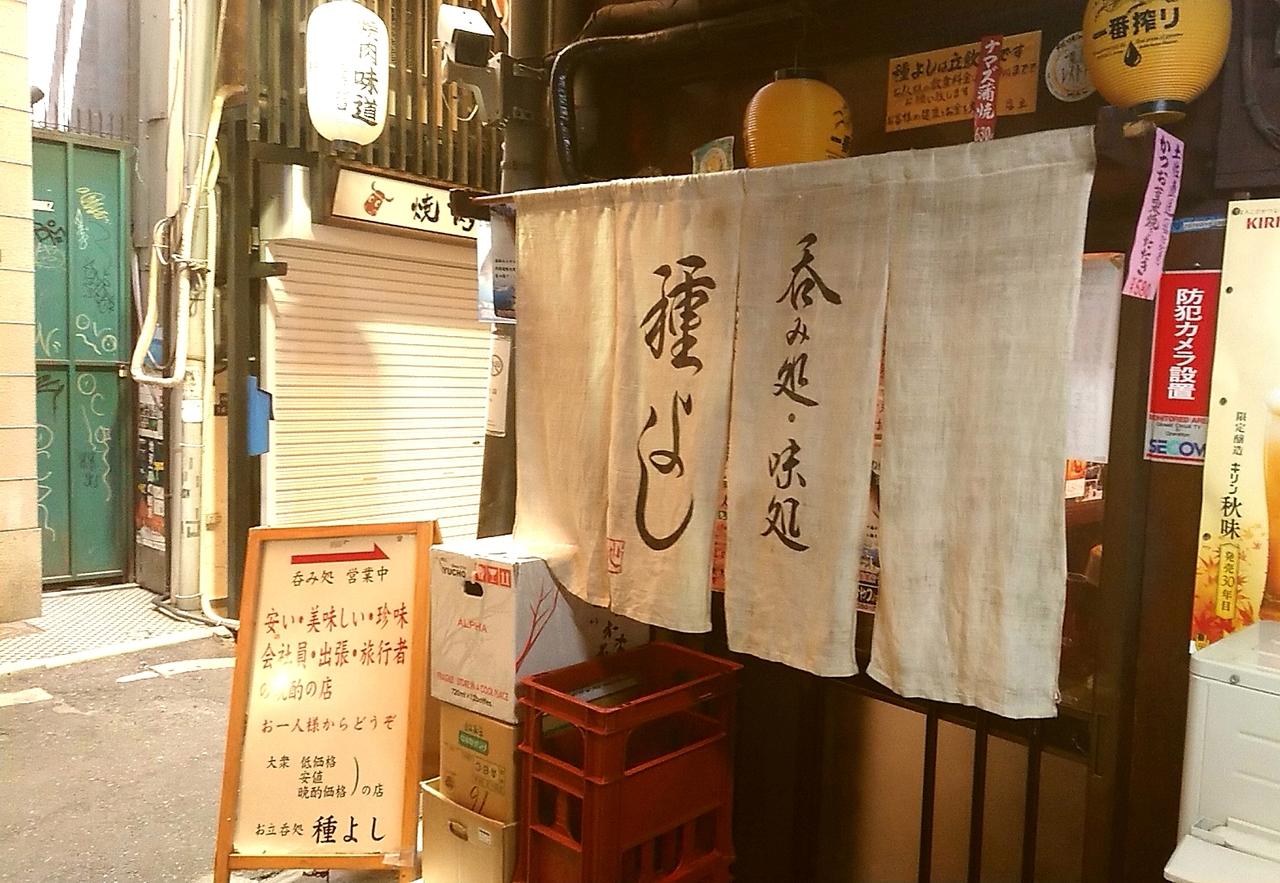 味道
焼
種よし
呑み処・味処
一番搾り
種よしは立飲
ナマズ蒲焼
630
かつお藁焼たたき
¥580
防犯カメラ設置
MONITORED AREA
SECOM
KIRI
限定醸造 キリン秋味
発売30年目
呑み処 営業中
安い・美味しい・珍味
会社員・出張・旅行者
の晩酌の店
お一人様からどうぞ
大衆 低価格
安値
晩酌価格
の店
お立呑処 種よし
YUCHO
ALPHA
FRAGILE STORE IN A COOL PLACE
720ml×12bottles
91